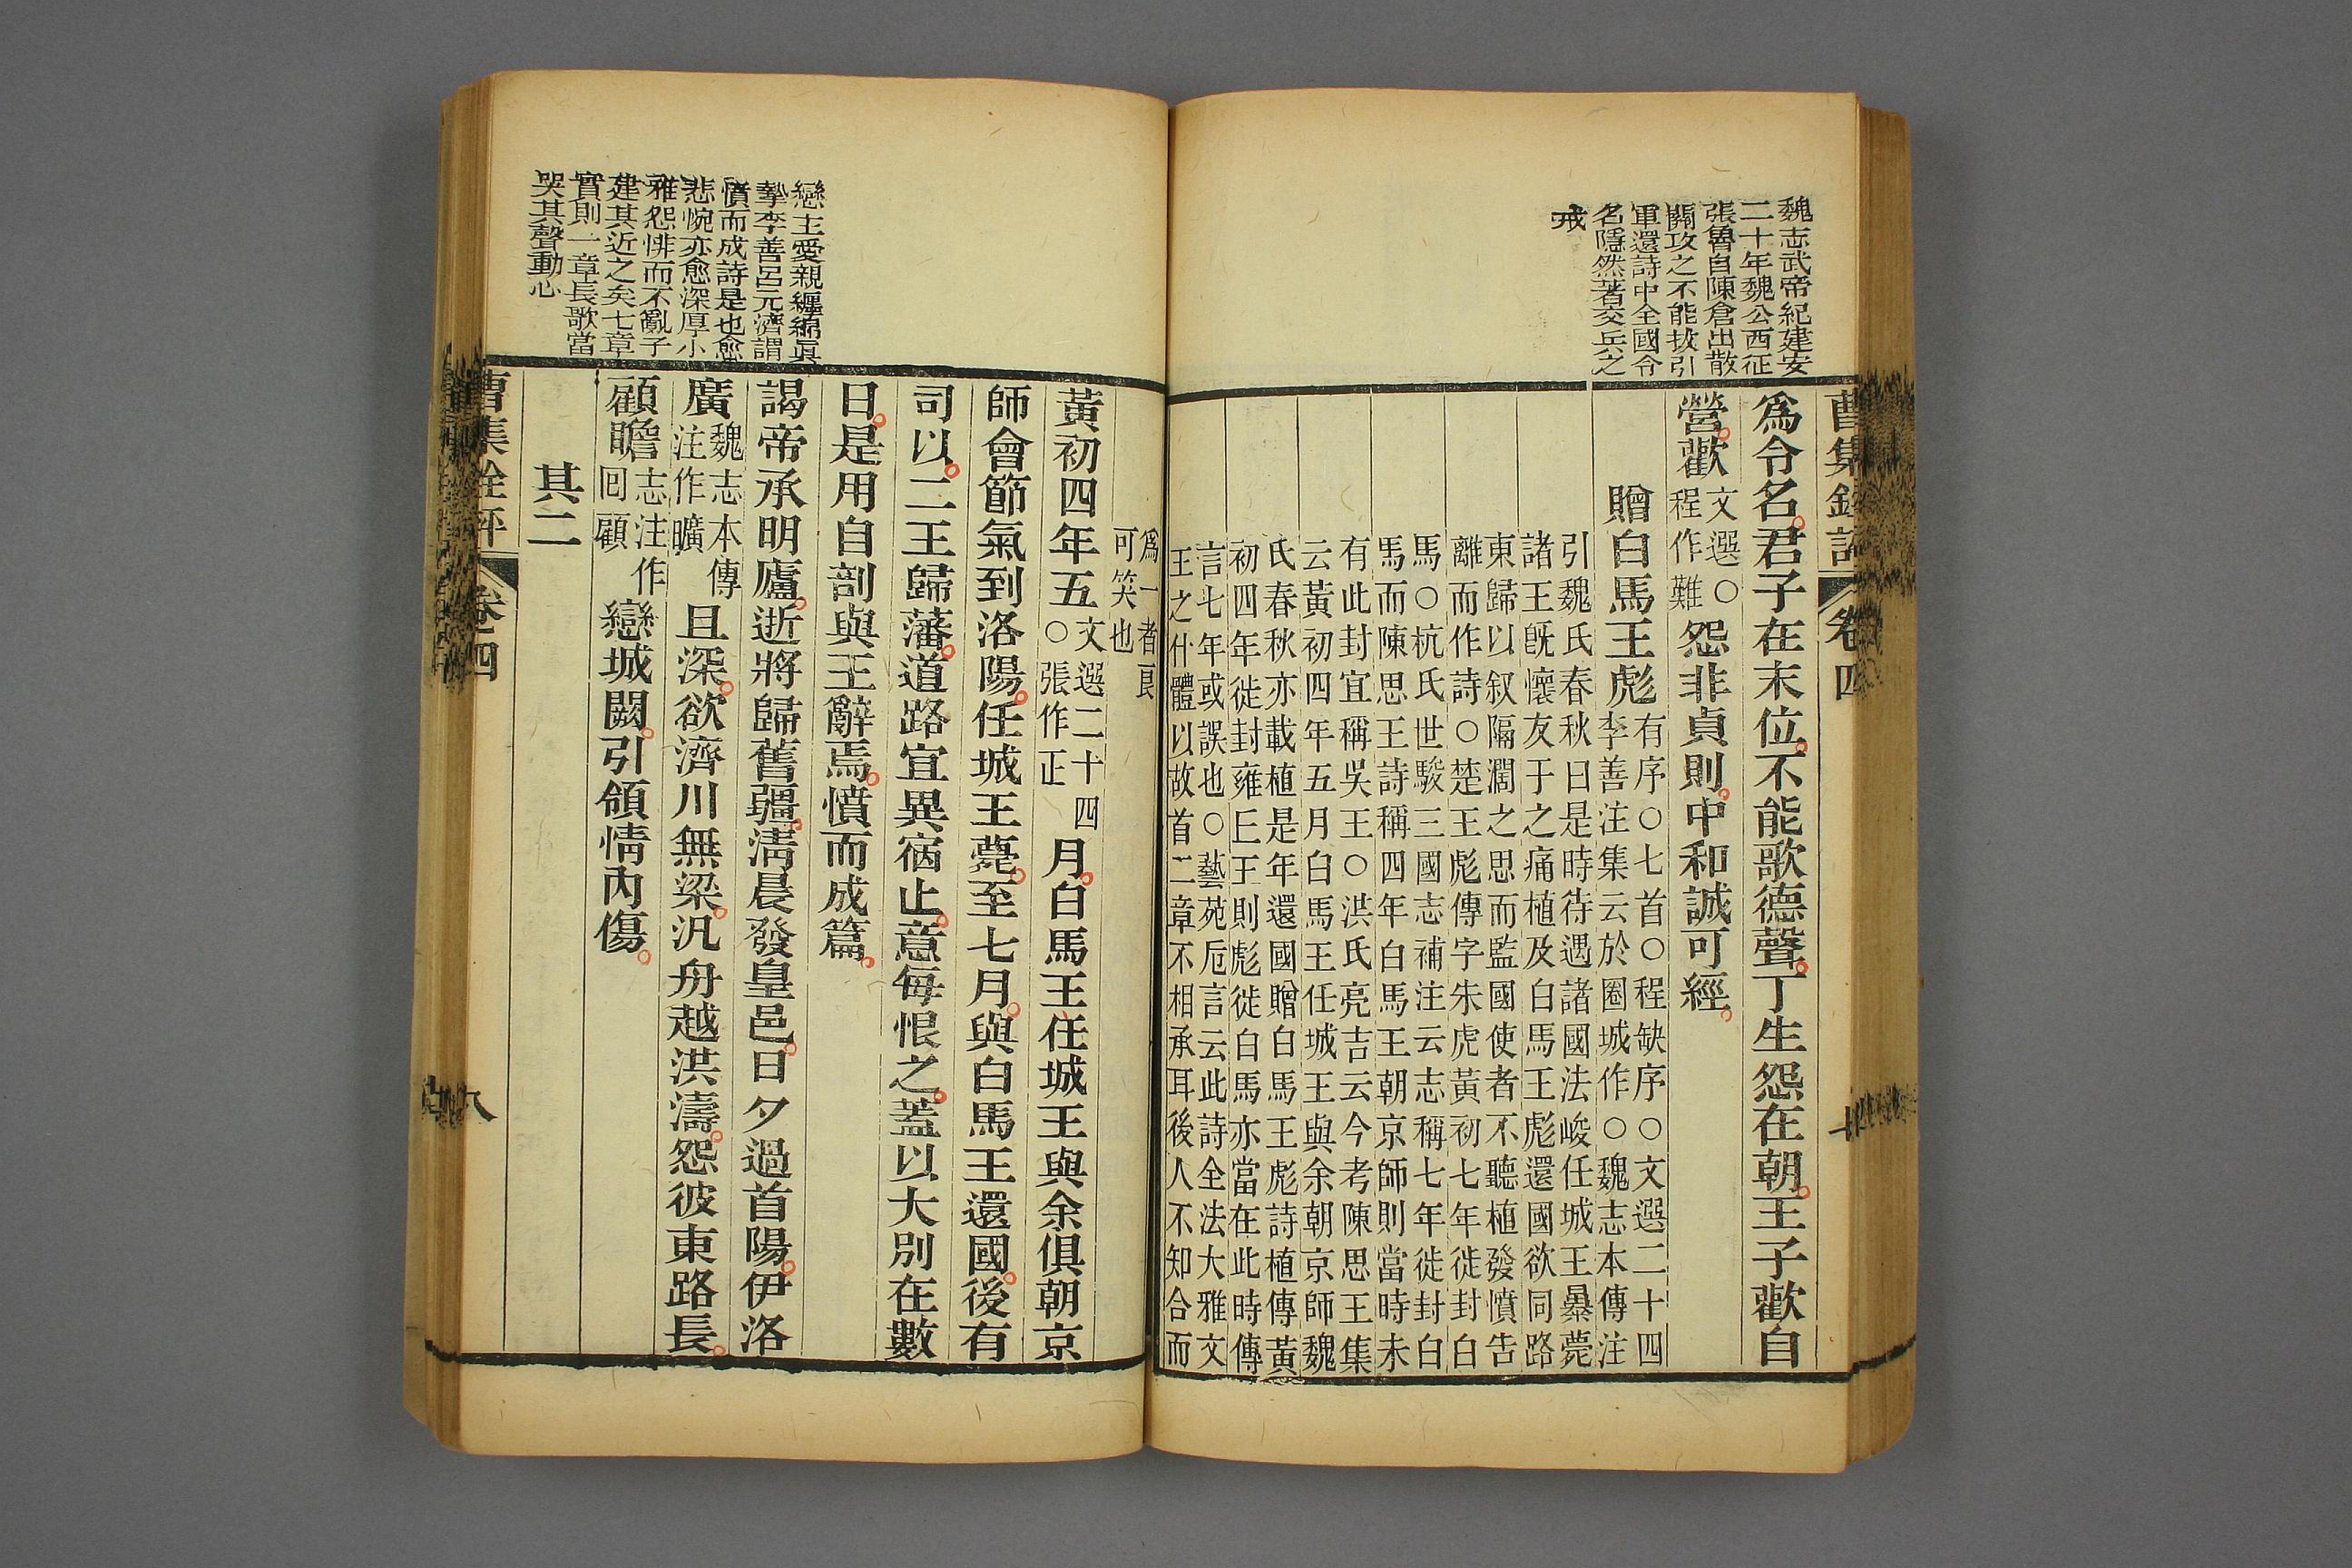 魏志武帝紀建安
二十年魏公西征
張魯自陳倉出散
關攻之不能拔引
軍還詩中全國令
名隱然著交兵之
戒
曹集銓評
卷四
爲令名君子在末位不能歌德聲丁生怨在朝王子歡自
營歡文選○程作難怨非貞則中和誠可經
贈白馬王彪有序○七首○程缺序○文選二十四
李善注集云於圈城作○魏志本傳注
引魏氏春秋曰是時待遇諸國法峻任城王暴薨
諸王旣懷友于之痛植及白馬王彪還國欲同路
東歸以叙隔濶之思而監國使者不聽植發憤告
離而作詩○楚王彪傳字朱虎黃初七年徙封白
馬○杭氏世駿三國志補注云志稱七年徙封白
馬而陳思王詩稱四年白馬王朝京師則當時未
有此封宜稱吳王○洪氏亮吉云今考陳思王集
云黃初四年五月白馬王任城王與余朝京師魏
氏春秋亦載植是年還國贈白馬王彪詩植傳黃
初四年徙封雍丘王則彪徙白馬亦當在此時傳
言七年或誤也○藝苑卮言云此詩全法大雅文
王之什體以故首二章不相承耳後人不知合而
爲一者良
可笑也
黃初四年五○文選二十四張作正月白馬王任城王與余俱朝京
師會節氣到洛陽任城王薨至七月與白馬王還國後有
司以二王歸藩道路宜異宿止意每恨之蓋以大別在數
日是用自剖與王辭焉憤而成篇
謁帝承明廬逝將歸舊疆淸晨發皇邑日夕過首陽伊洛
廣魏志本傳注作曠且深欲濟川無梁汎舟越洪濤怨彼東路長
顧瞻志注作回顧戀城闕引領情內傷
其二
戀主愛親纏綿眞
摯李善呂元濟謂
憤而成詩是也愈
悲惋亦愈深厚小
雅怨悱而不亂子
建其近之矣七章
實則一章長歌當
哭其聲動心
曹集銓評
卷四
八